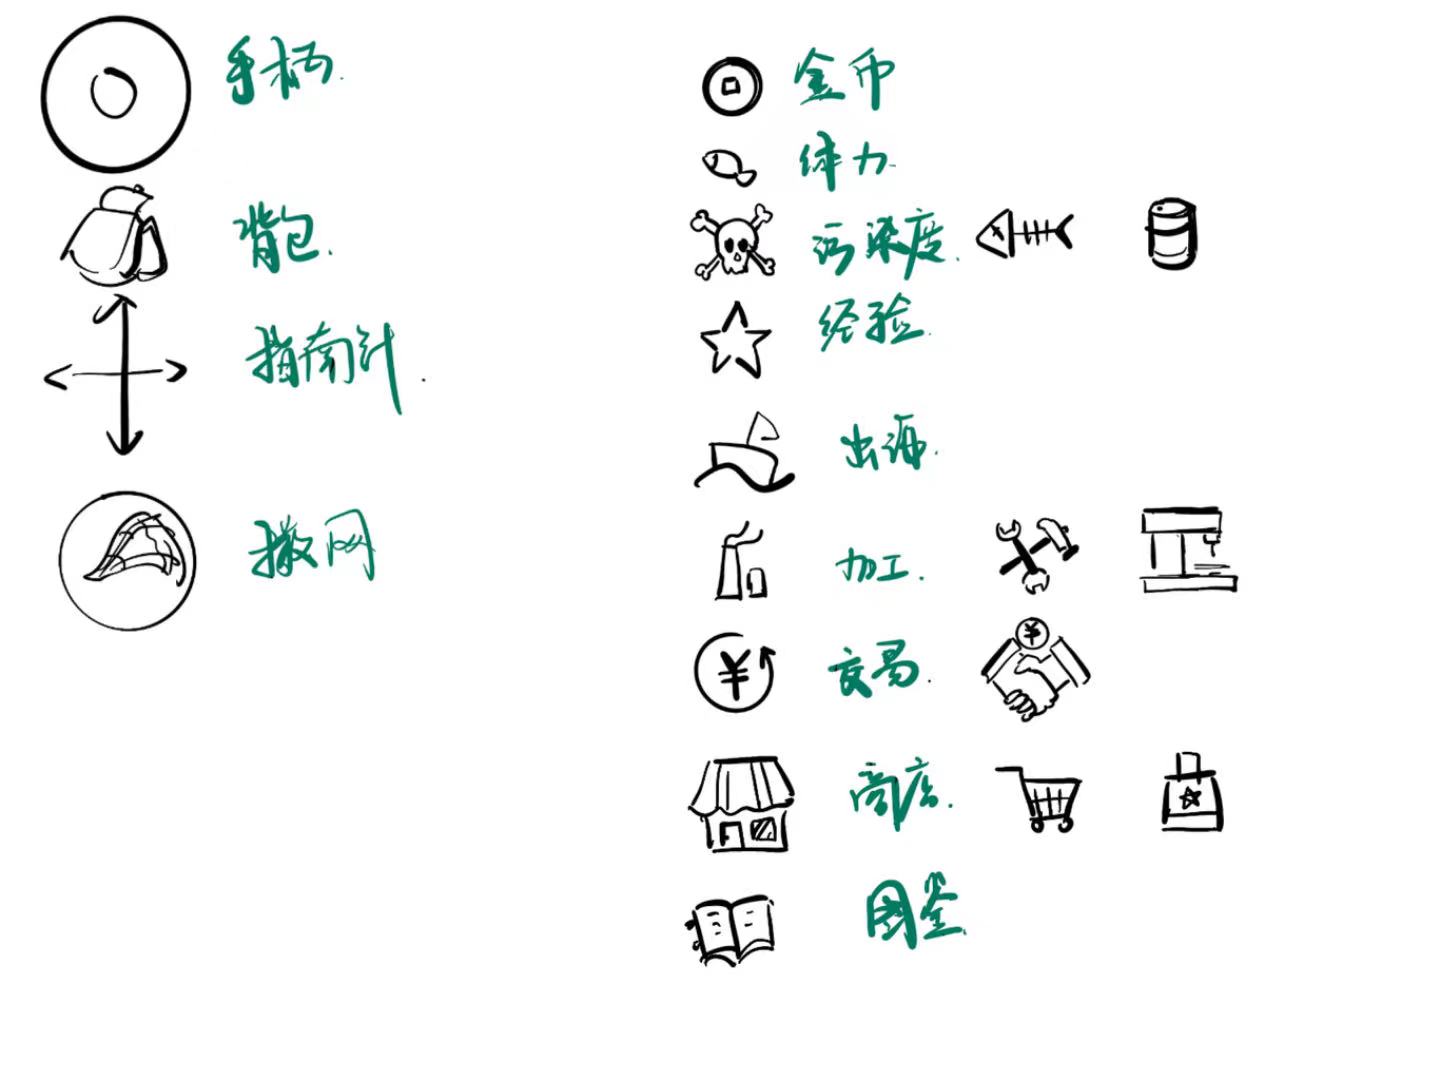 手柄.
背包.
指南针.
撒网
金币
体力.
污染度.
经验.
出海.
加工.
¥
交易.
¥
商店.
图鉴.